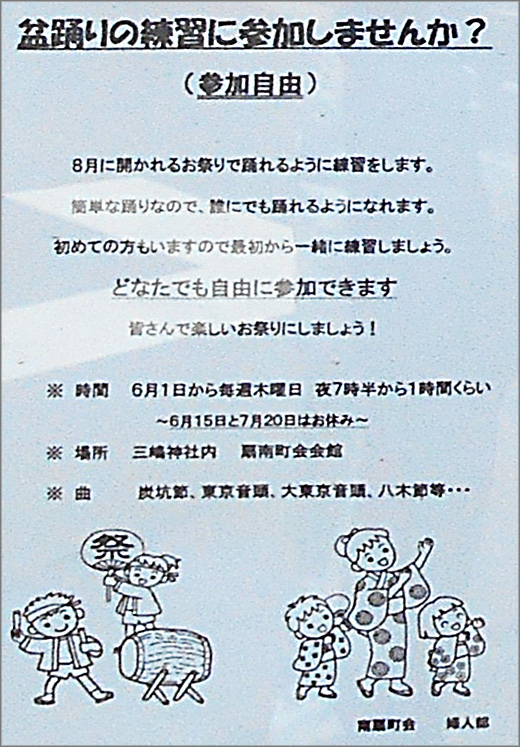 盆踊りの練習に参加しませんか？
（参加自由）
8月に開かれるお祭りで踊れるように練習をします。
簡単な踊りなので、誰にでも踊れるようになれます。
初めての方もいますので最初から一緒に練習しましょう。
どなたでも自由に参加できます
皆さんで楽しいお祭りにしましょう！
※ 時間 6月1日から毎週木曜日 夜7時半から1時間くらい
～6月15日と7月20日はお休み～
※ 場所 三嶋神社内 扇南町会会館
※ 曲 炭坑節、東京音頭、大東京音頭、八木節等・・・
祭
南扇町会 婦人部